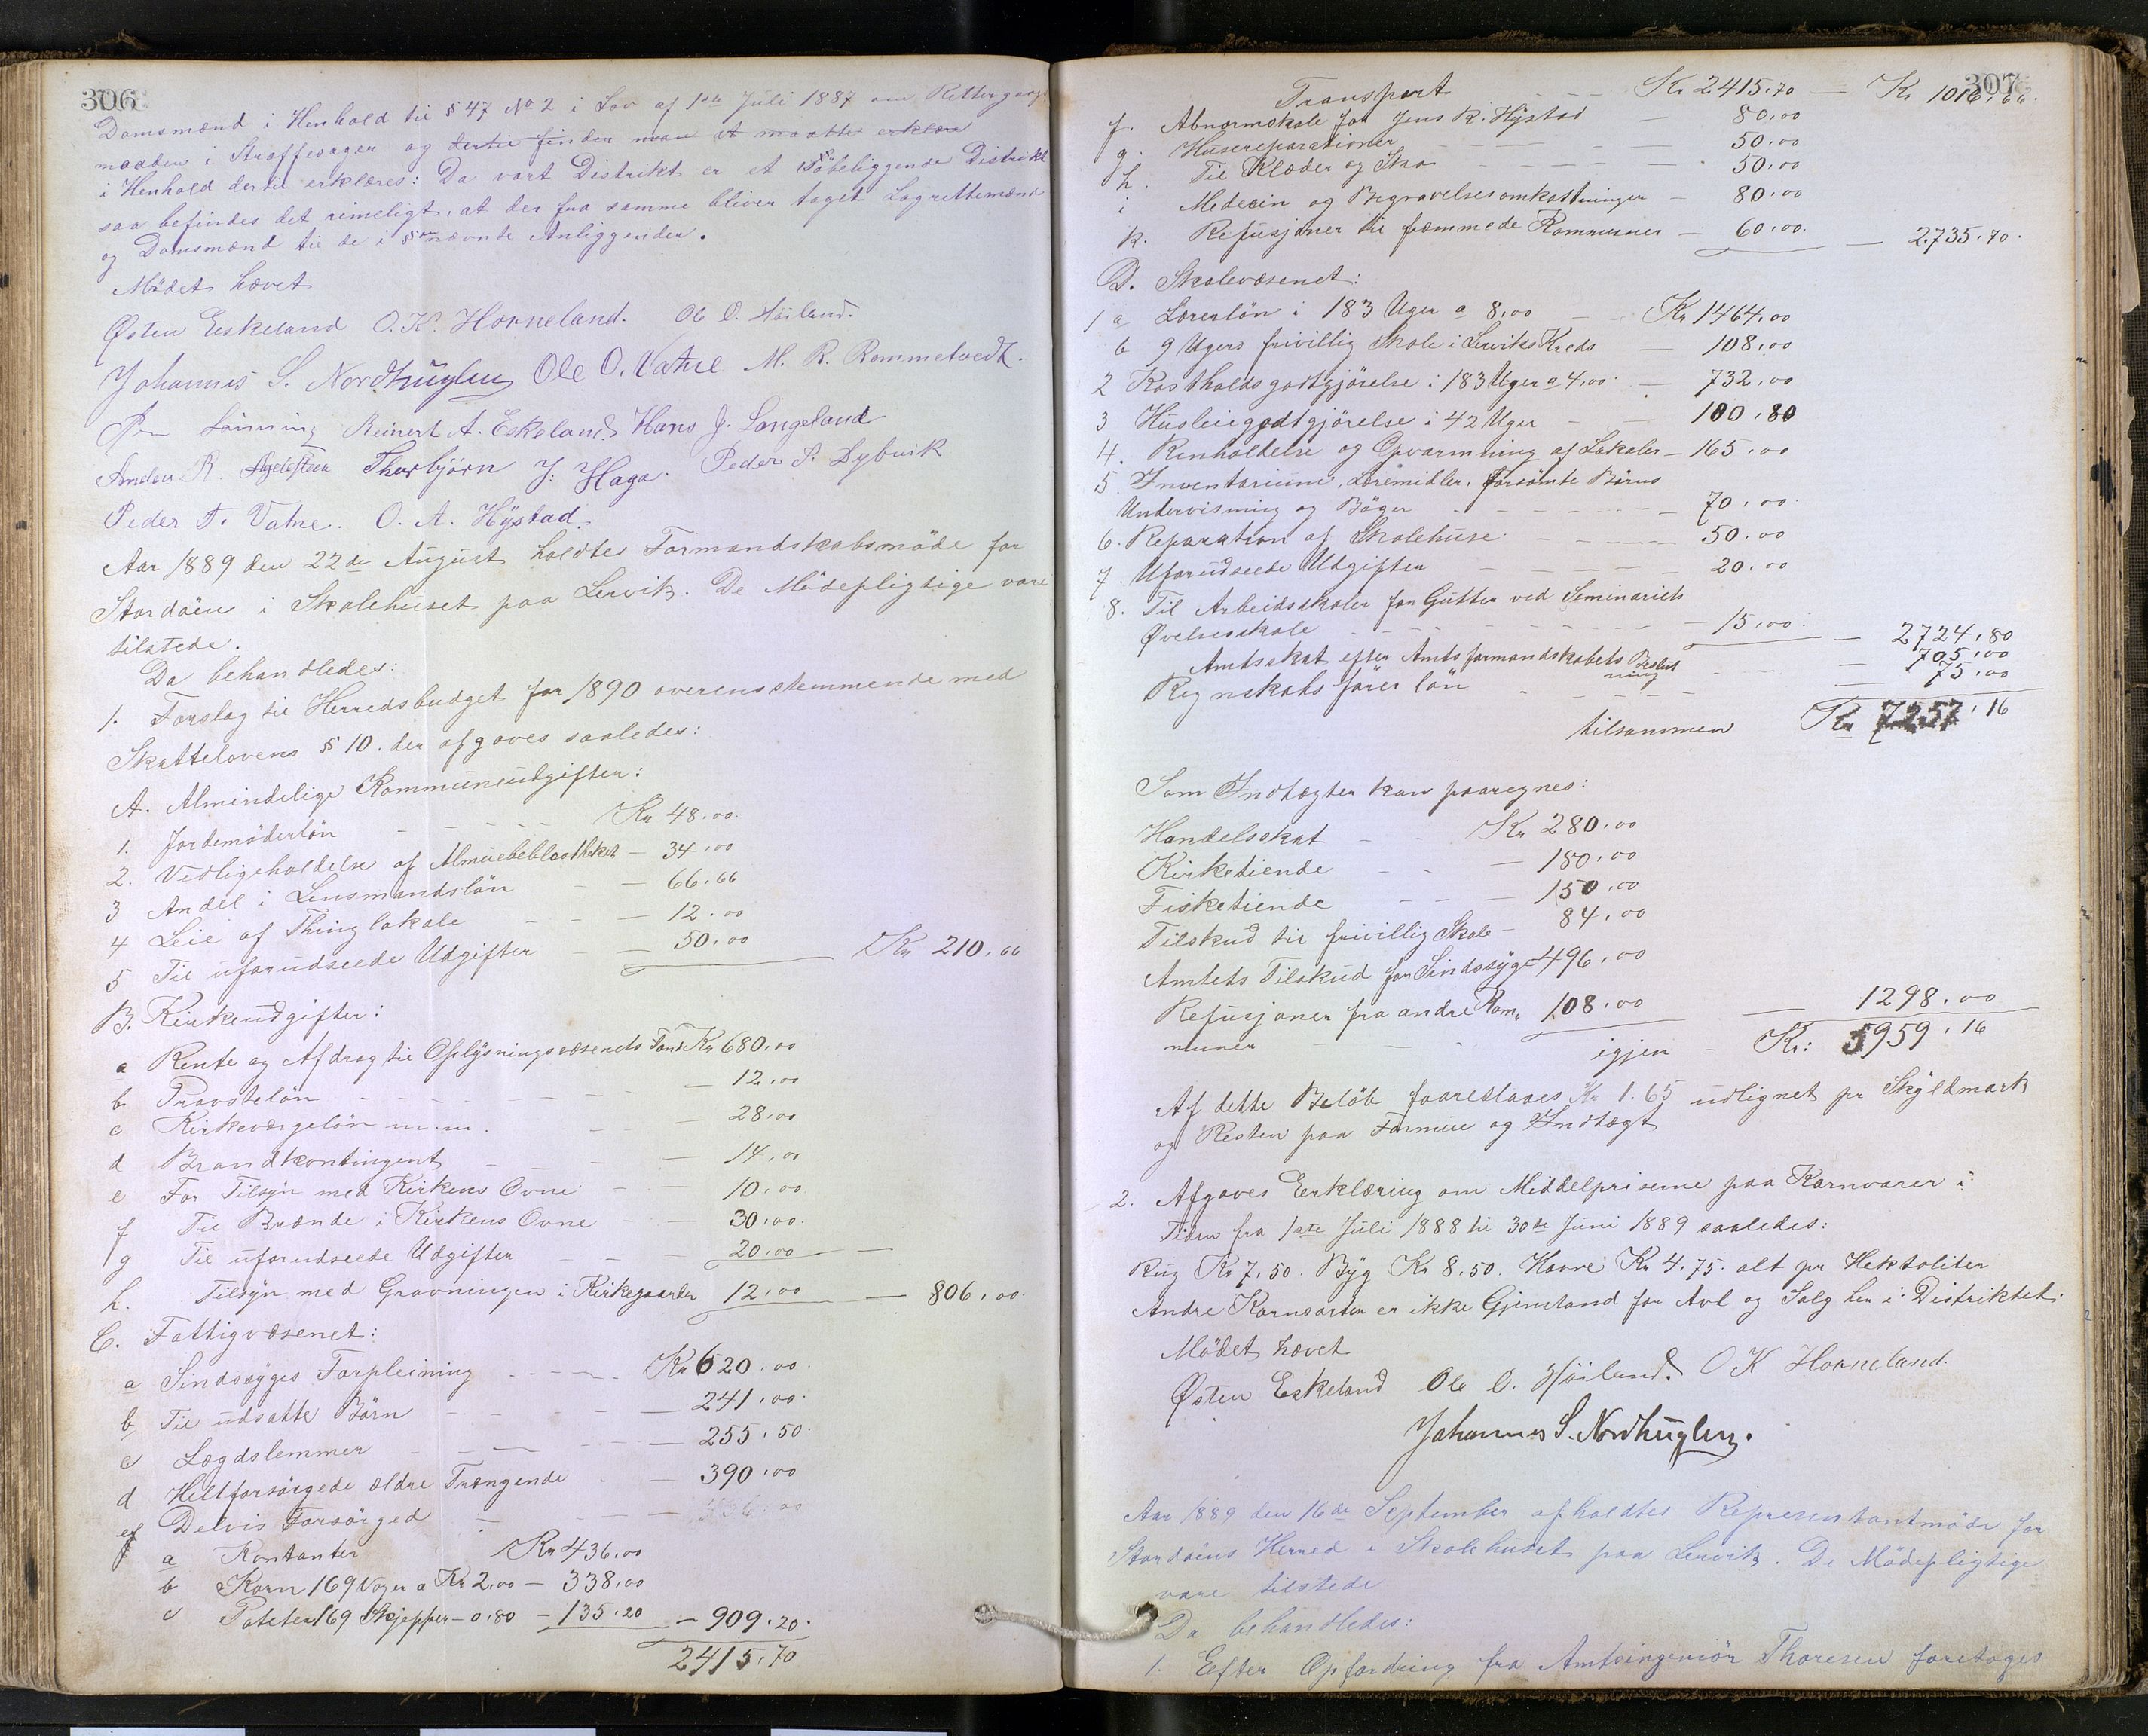 306
Domsmænd i Henhold til § 47 No 2 i Lov af 1ste Juli 1887 om Rettergangs
maaden i Straffesager og dertil finder man at maatte erklære
i Henhold dertil erklæres: Da vort Distrikt er et Söbeliggende Distrikt
saa befindes det rimeligt, at der fra samme bliver taget Lagrettemænd
og Domsmænd til de i §en nævnte Anliggender.
Mödet hævet
Østen Eskeland O. K. Horneland. Ole O. Höiland.
Johannes S. Nordhuglen Ole O. Vatne M. R. Rommetvedt.
Lönning Reinert A. Eskeland Hans J. Langeland
Anders R. Thorbjörn J. Haga. Peder P. Dybvik
Peder T. Vatne. O. A. Hÿstad.
Aar 1889 den 22de August holdtes Formandskabsmöde for
Stordöen i Skolehuset paa Lervik. De Mödepligtige vare
tilstede.
Da behandledes:
1. Forslag til Herredsbudget for 1890 overensstemmende med
Skattelovens § 10. der afgaves saaledes:
A. Almindelige Kommuneudgifter:
1. Jordemöderlön Kr 48.00.
2. Vedligeholdelse af Almuebebliotheket — 34.00
3 Andel i Lensmandslön — 66.66
4 Leie af Thinglokale — 12.00
5 Til uforudseede Udgifter — 50.00 Kr 210.66
B. Kirkeudgifter:
a Rente og Afdrag til Oplysningsvæsenets Fond Kr 680.00
b Provstelön — 12.00
c Kirkeværgelön m.m. — 28.00
d Brandkontingent — 14.00
e For Tilsyn med Kirkens Ovne — 10.00
f Til Brænde i Kirkens Ovne — 30.00.
g Til uforudseede Udgifter — 20.00 —
h. Tilsyn med Gravningen i Kirkegaarden 12.00 — 806.00.
C. Fattigvæsenet:
a Sindssyges Forpleining Kr 620.00.
b Til udsatte Börn — 241.00.
c Lægdslemmer — 255.50.
d Heltforsörgede ældre Trængende — 390.00
e Delvis Forsörged
a Kontanter Kr 436.00
b Korn 169 Voger a Kr 2.00 — 338.00
c Poteter 169 Skjepper — 0.80 — 135.20 — 909.20.
2415.70
307
Transport Kr 2415.70 — Kr 1016.66.
f. Abnormskole for Jens R. Hÿstad — 80.00
g. Husereparationer — 50.00
h. Til Klæder og Sko — 50.00
i Medecin og Begravelsesomkostninger — 80.00
k. Refusjoner til fræmmede Kommuner — 60.00. — 2735.70.
D. Skolevæsenet:
1 a Lærerlön i 183 Uger a 8,00 — Kr 1464.00
b 9 Ugers frivillig Skole i Lerviks Kreds — 108.00
2 Kostholdsgodtgjörelse i 183 Uger a 4,00. — 732.00
3 Husleiegodtgjörelse i 42 Uger — 100.80
4. Renholdelse og Opvarmning af Lokaler — 165.00
5. Inventarium, Læremidler, Forsömte Börns
Undervisning og Böger — 70.00.
6. Reparation af Skolehuse — 50.00
7. Uforudseede Udgifter — 20.00
8. Til Arbeidsskoler for Gutter ved Seminariets
Øvelsesskole — 15.00. — 2724.80
Amtsskat efter Amtsformandskabets Beslut
ning — 705.00
Regnskabsförer lön — 75.00
tilsammen Kr 7257.16
Som Indtægter kan paaregnes:
Handelsskat Kr 280.00
Kirketiende — 180.00
Fisketiende — 150.00
Tilskud til frivillig Skole — 84.00
Amtets Tilskud for Sindssyge 496.00
Refusjoner fra andre Kom, 108.00 — 1298.00
muner igjen — Kr: 5959.16
Af dette Belöb foreslaaes Kr 1.65 udlignet pr Skyldmark
og Resten paa Formue og Indtægt
2. Afgaves Erklæring om Middelpriserne paa Kornvarer i
Tiden fra 1ste Juli 1888 til 30te Juni 1889 saaledes:
Rug Kr 7.50. Byg Kr 8.50. Havre Kr 4.75. alt pr Hektoliter
Andre Kornsorter er ikke Gjenstand for Avl og Salg her i Distriktet.
Mödet hævet
Østen Eskeland Ole O. Höiland. O K Horneland.
Johannes S. Nordhuglen.
Aar 1889 den 16de September afholdtes Representantmöde for
Stordöens Herred i Skolehuset paa Lervik. De Mödepligtige
vare tilstede
Da behandledes:
1. Efter Opfordring fra Amtsingeniör Thoresen foretoges